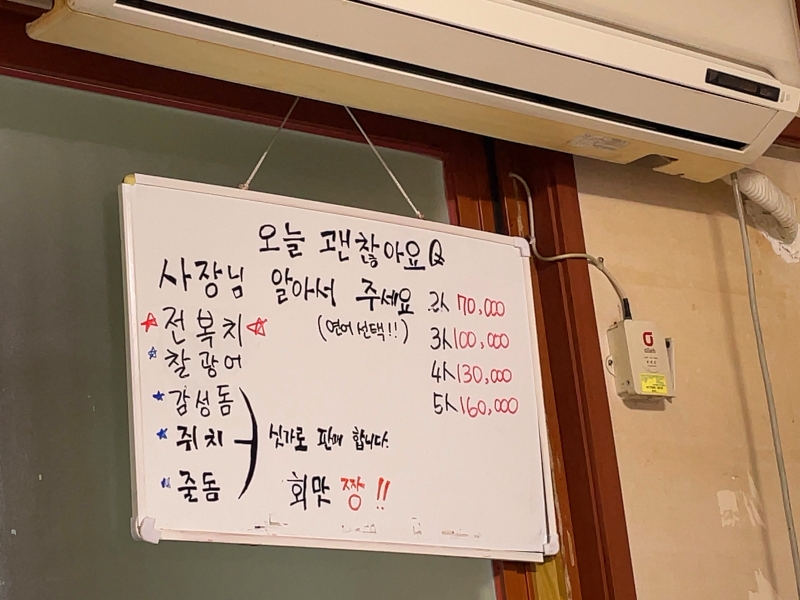 오늘 괜찮아요Q
사장님 알아서 주세요 2人 70,000
☆전복치☆ (연어 선택!!) 3人 100,000
☆찰광어 4人 130,000
☆감성돔 5人 160,000
☆쥐치 싯가로 판매 합니다.
줄돔 회맛 짱!!